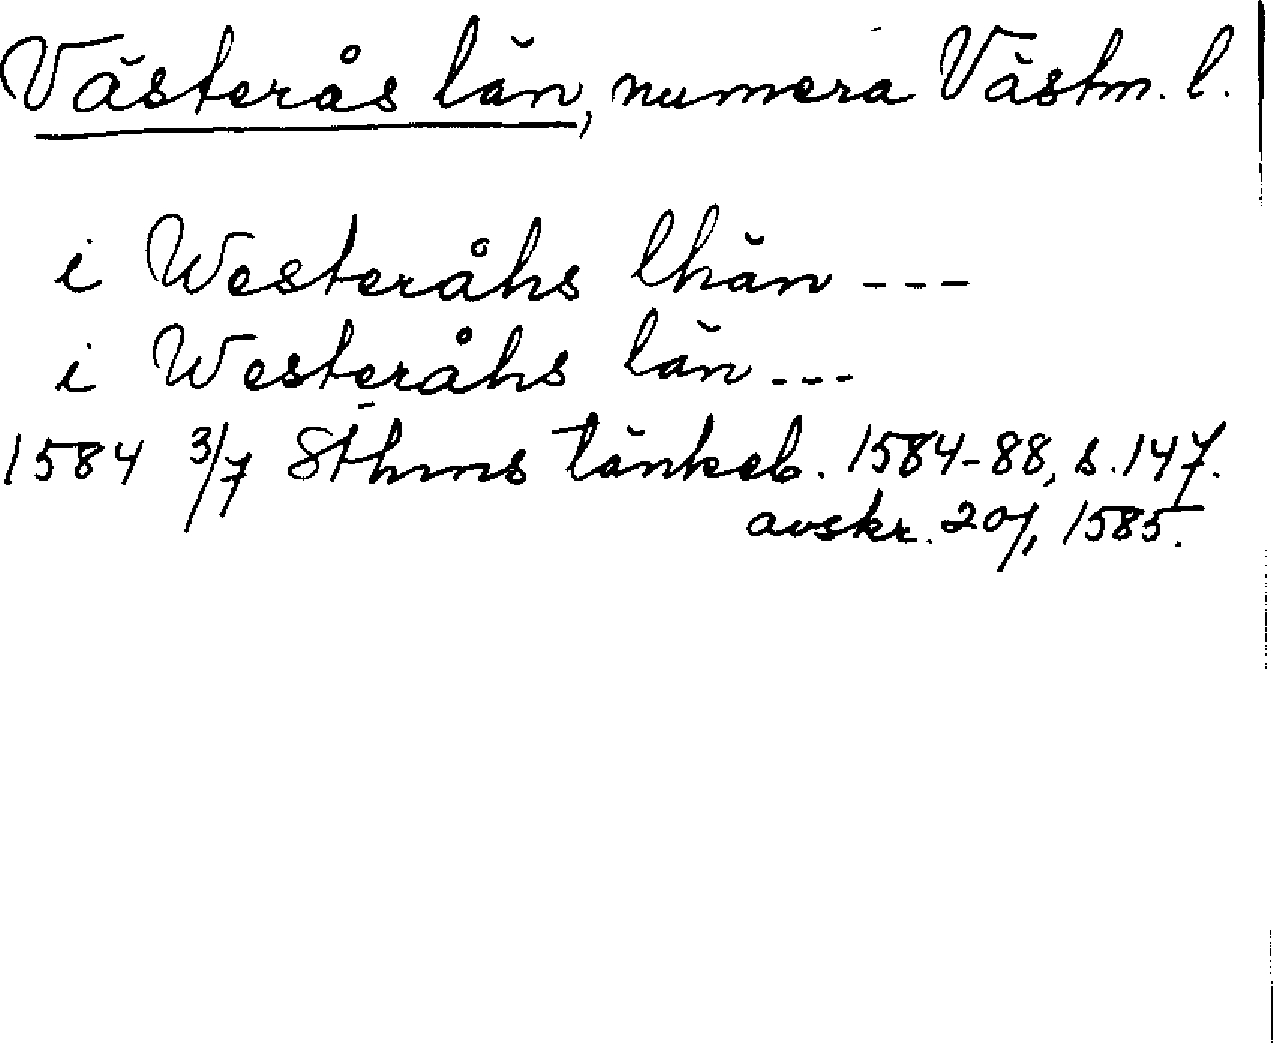 Västerås län, numera Västm. l.
i Westeråhs lhän ---
i Westeråhs län ---
1584 3/7 Sthms tänkeb. 1584-88, s. 147.
avskr. 20/1 1585.